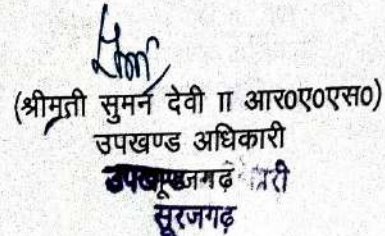 (श्रीमती सुमन देवी II आर0ए0एस0)
उपखण्ड अधिकारी
सूरजगढ़